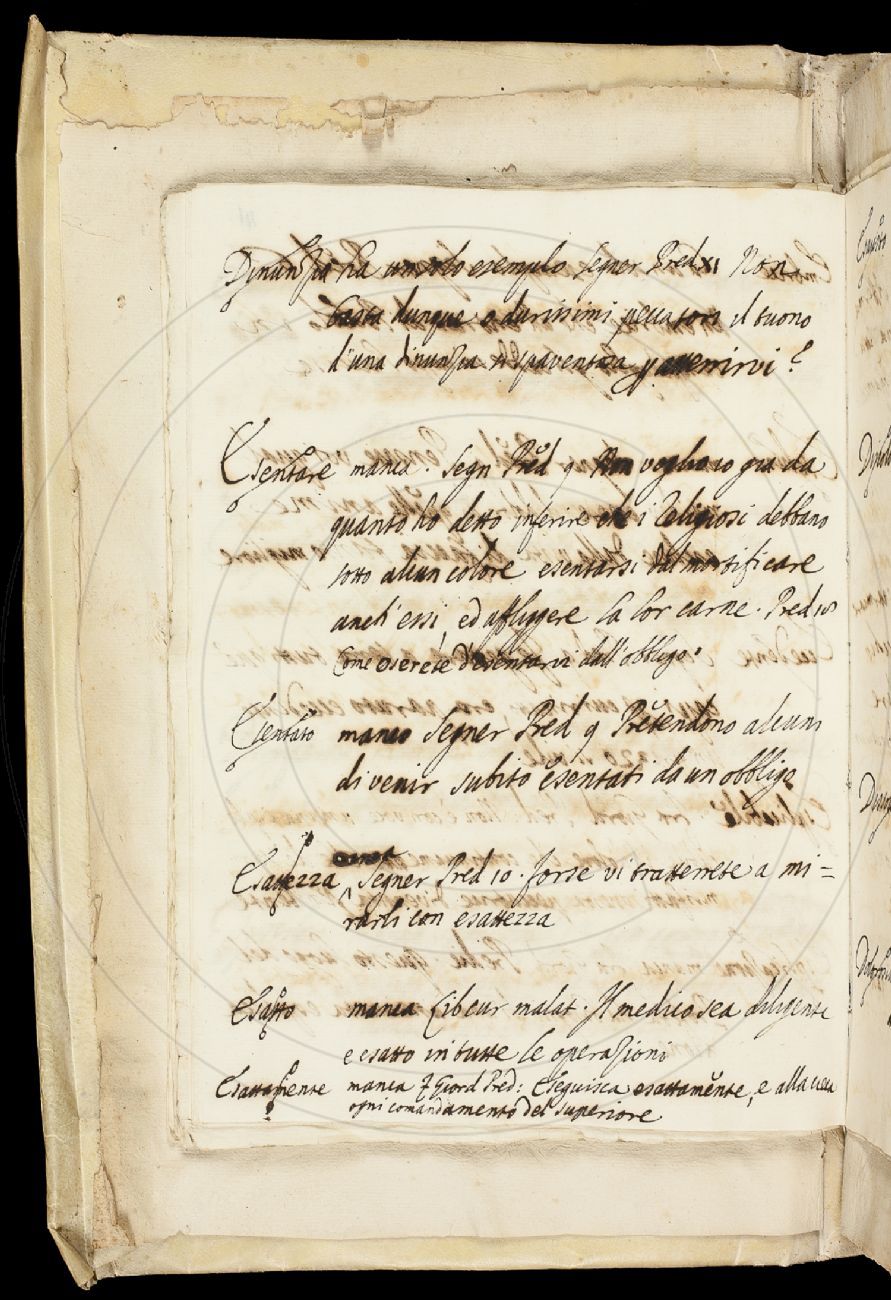 Dinunzia ha un solo esempio Segner Pred XI Non
basta dunque o durissimi peccatori il suono
d'una dinunzia sì spaventosa p atterrirvi?
Esentare manca. Segn Pred 9 Non voglio io gia da
quanto ho detto inferire che i Religiosi debbano
sotto alcun colore esentarsi dal mortificare
anch'essi, ed affliggere la lor carne. Pred 10
Come oserete d'esentarvi dall'obbligo
Esentato manca Segner Pred 9 Pretendono alcuni
di venir subito esentati da un obbligo
manca
Esattezza Segner Pred 10. forse vi tratterrete a mi=
rarli con esattezza
Esatto manca Lib cur malat. Il medico sea diligente
e esatto in tutte le operazioni
Esattamente manca F Giord Pred: Eseguisca esattamente, e alla cieca
ogni comandamento del superiore